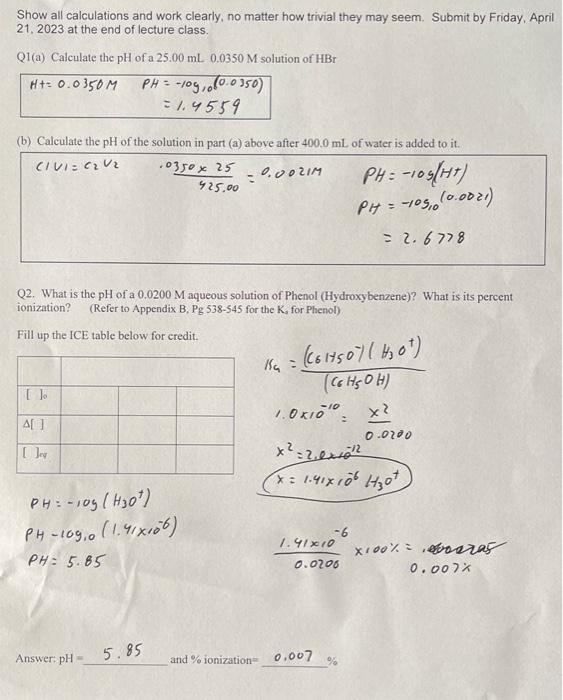 Show all calculations and work clearly, no matter how trivial they may seem. Submit by Friday, April
21, 2023 at the end of lecture class.
Q1(a) Calculate the pH of a 25.00 mL 0.0350 M solution of HBr
H+= 0.0350M PH = -log₁₀(0.0350)
= 1.4559
(b) Calculate the pH of the solution in part (a) above after 400.0 mL of water is added to it.
C1V1 = C2V2
.0350 x 25
425.00
= 0.0021M
PH = -log(H+)
PH = -log₁₀(0.0021)
= 2.6778
Q2. What is the pH of a 0.0200 M aqueous solution of Phenol (Hydroxybenzene)? What is its percent
ionization? (Refer to Appendix B, Pg 538-545 for the Kₐ for Phenol)
Fill up the ICE table below for credit.
[ ]₀
Δ[ ]
[ ]eq
Ka = (C6H5O⁻)(H₃O⁺)
(C6H5OH)
1.0x10⁻¹⁰ = x²
0.0200
x² = 2.0x10⁻¹²
x = 1.41x10⁻⁶ H₃O⁺
PH = -log(H3O⁺)
PH -log₁₀(1.41x10⁻⁶)
PH = 5.85
1.41x10⁻⁶
0.0200
x100% =
0.007%
Answer: pH = 5.85 and % ionization= 0.007 %